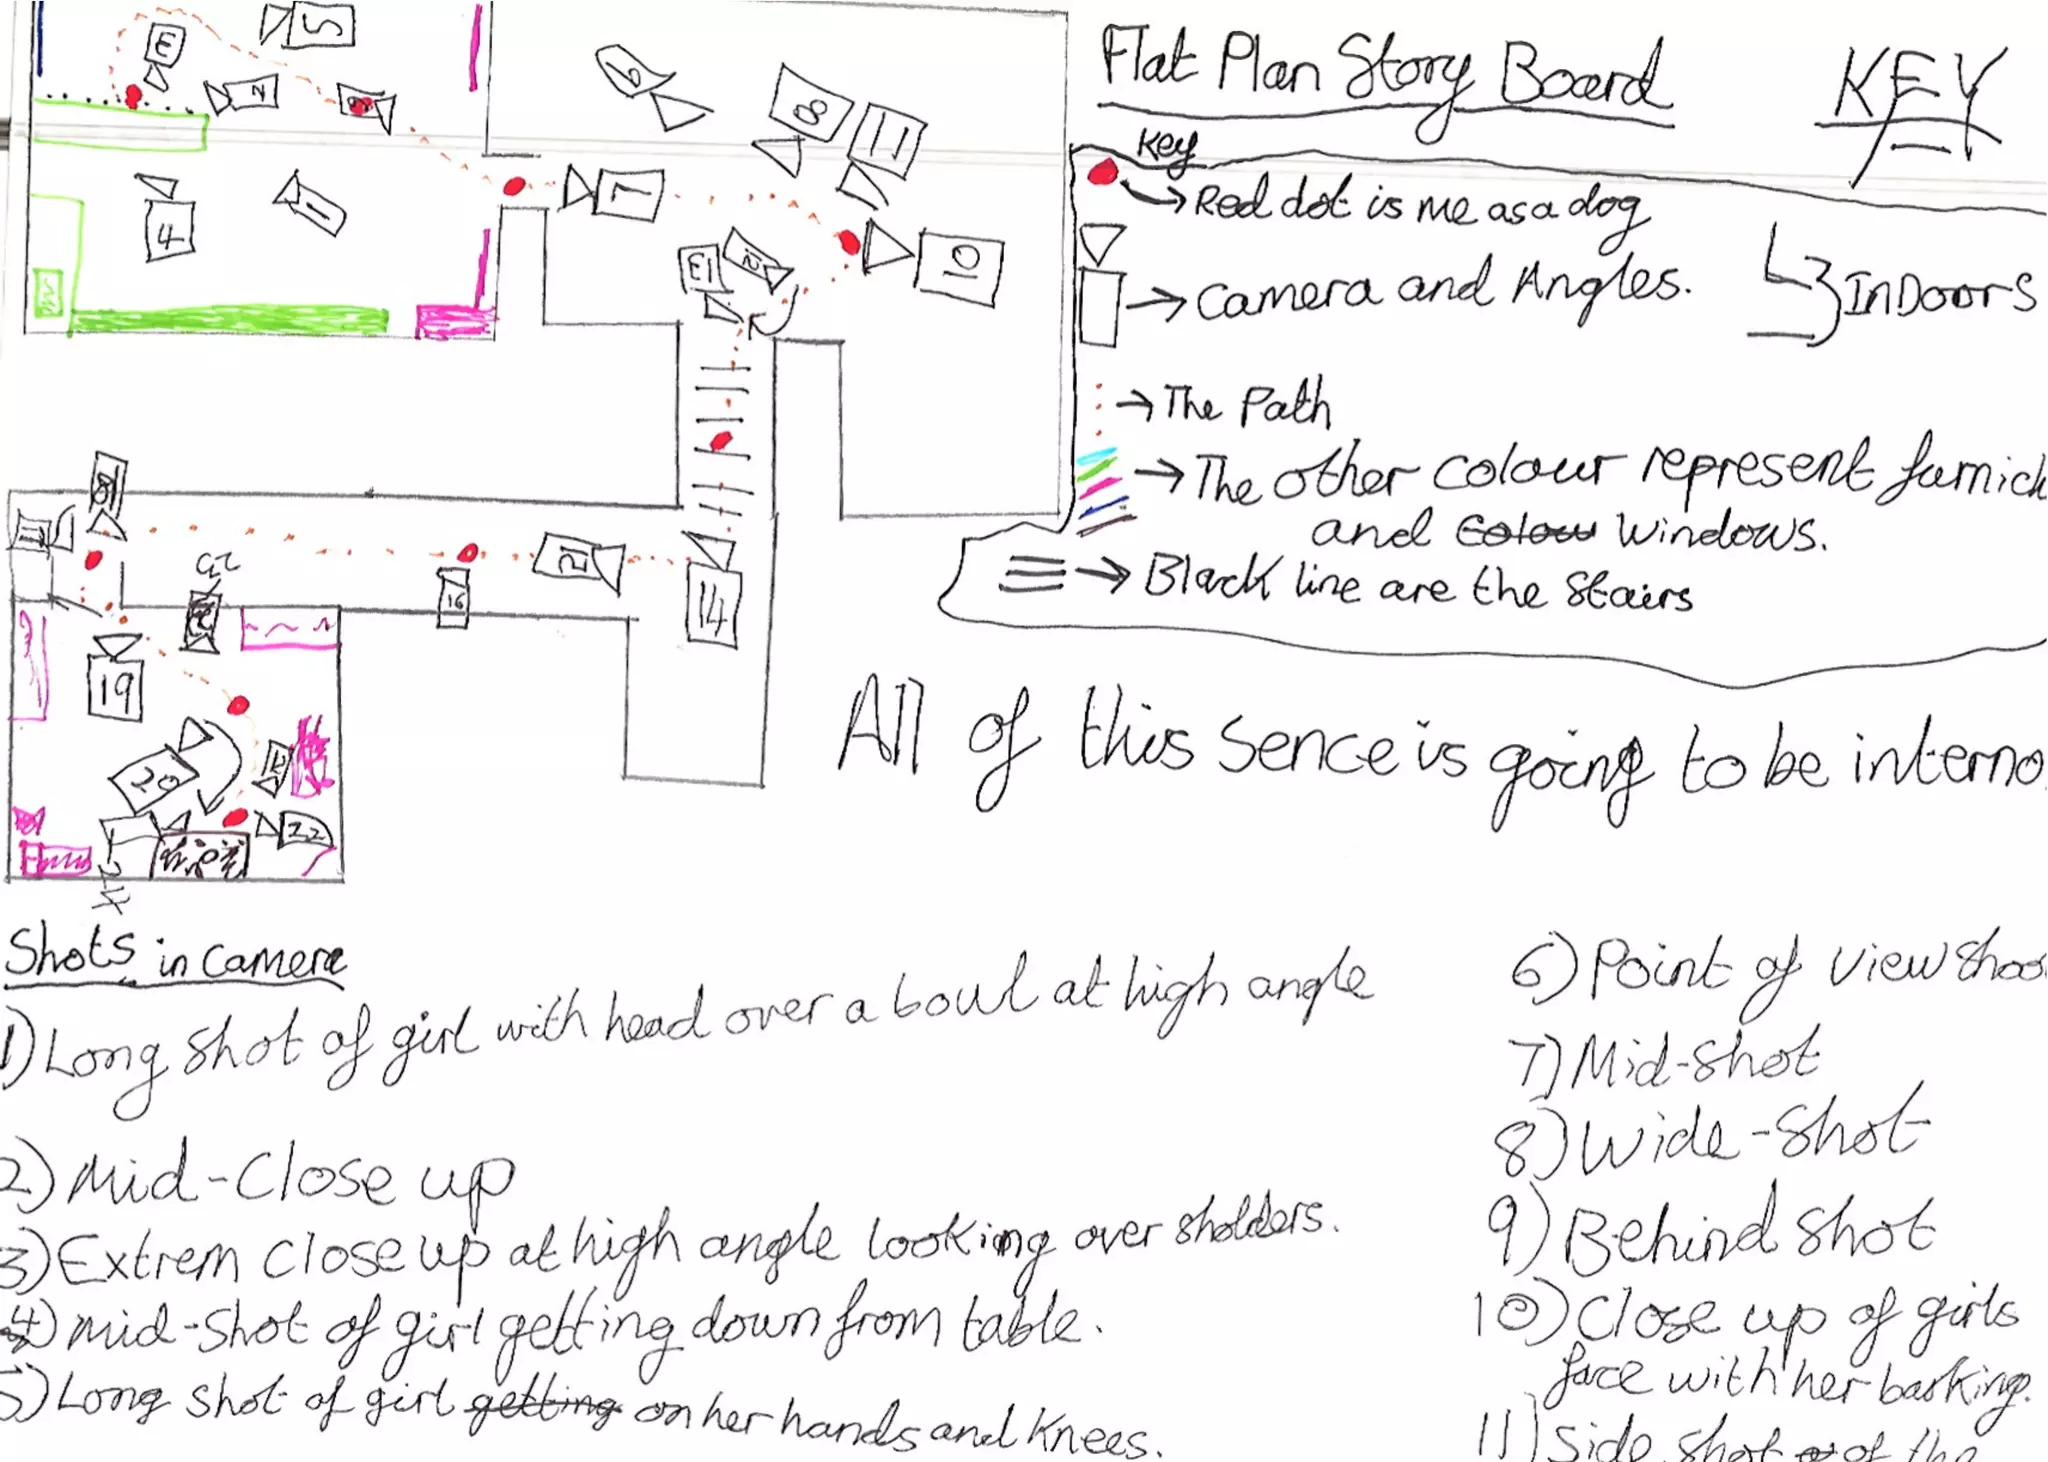 Flat Plan Story Board
KEY
Key
Red dot is me as a dog
Camera and Angles.
InDoors
The Path
The other colour represent furnich
and Colour Windows.
Black line are the Stairs
All of this Sence is going to be interna
3
5
2
6
8
11
4
1
7
10
13
12
18
17
23
15
16
14
19
20
22
Shots in Camera
1) Long Shot of girl with head over a bowl at high angle
2) Mid-Close up
3) Extrem close up at high angle looking over sholders.
4) Mid-Shot of girl getting down from table.
5) Long Shot of girl getting on her hands and Knees.
6) Point of View Shoo
7) Mid-Shot
8) Wide-Shot
9) Behind Shot
10) Close up of girls
face with her barking.
11) Side Shot of the